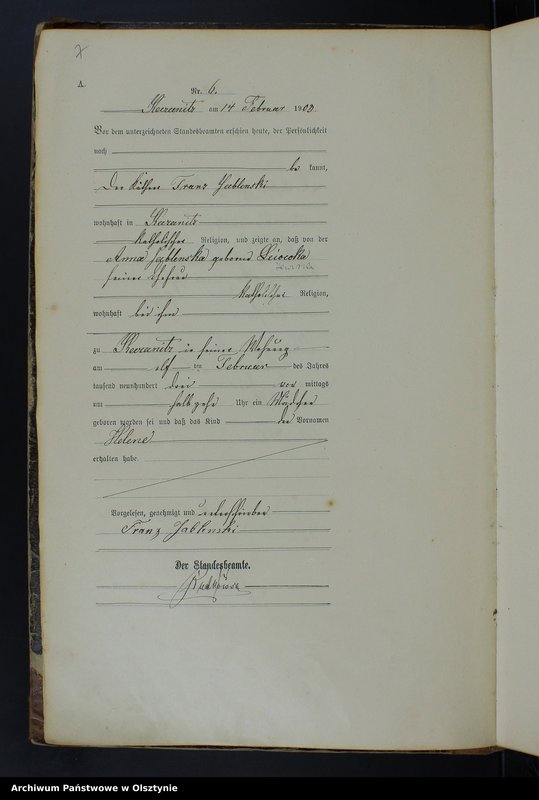 7
A.
Nr. 6.
Kazanitz am 14 Februar 1903.
Vor dem unterzeichneten Standesbeamten erschien heute, der Persönlichkeit
nach
be kannt,
Der Käthner Franz Jablonski
wohnhaft in Kazanitz
katholischer Religion, und zeigte an, daß von der
Anna Jablonska geborene
seiner Ehefrau
katholischer Religion,
wohnhaft bei ihm
zu Kazanitz in seiner Wohnung
am elf ten Februar des Jahres
tausend neunhundert drei vor mittags
um halb zehn Uhr ein Mädchen
geboren worden sei und daß das Kind den Vornamen
Helene
erhalten habe.
Vorgelesen, genehmigt und unterschrieben
Franz Jablonski
Der Standesbeamte.
Archiwum Państwowe w Olsztynie